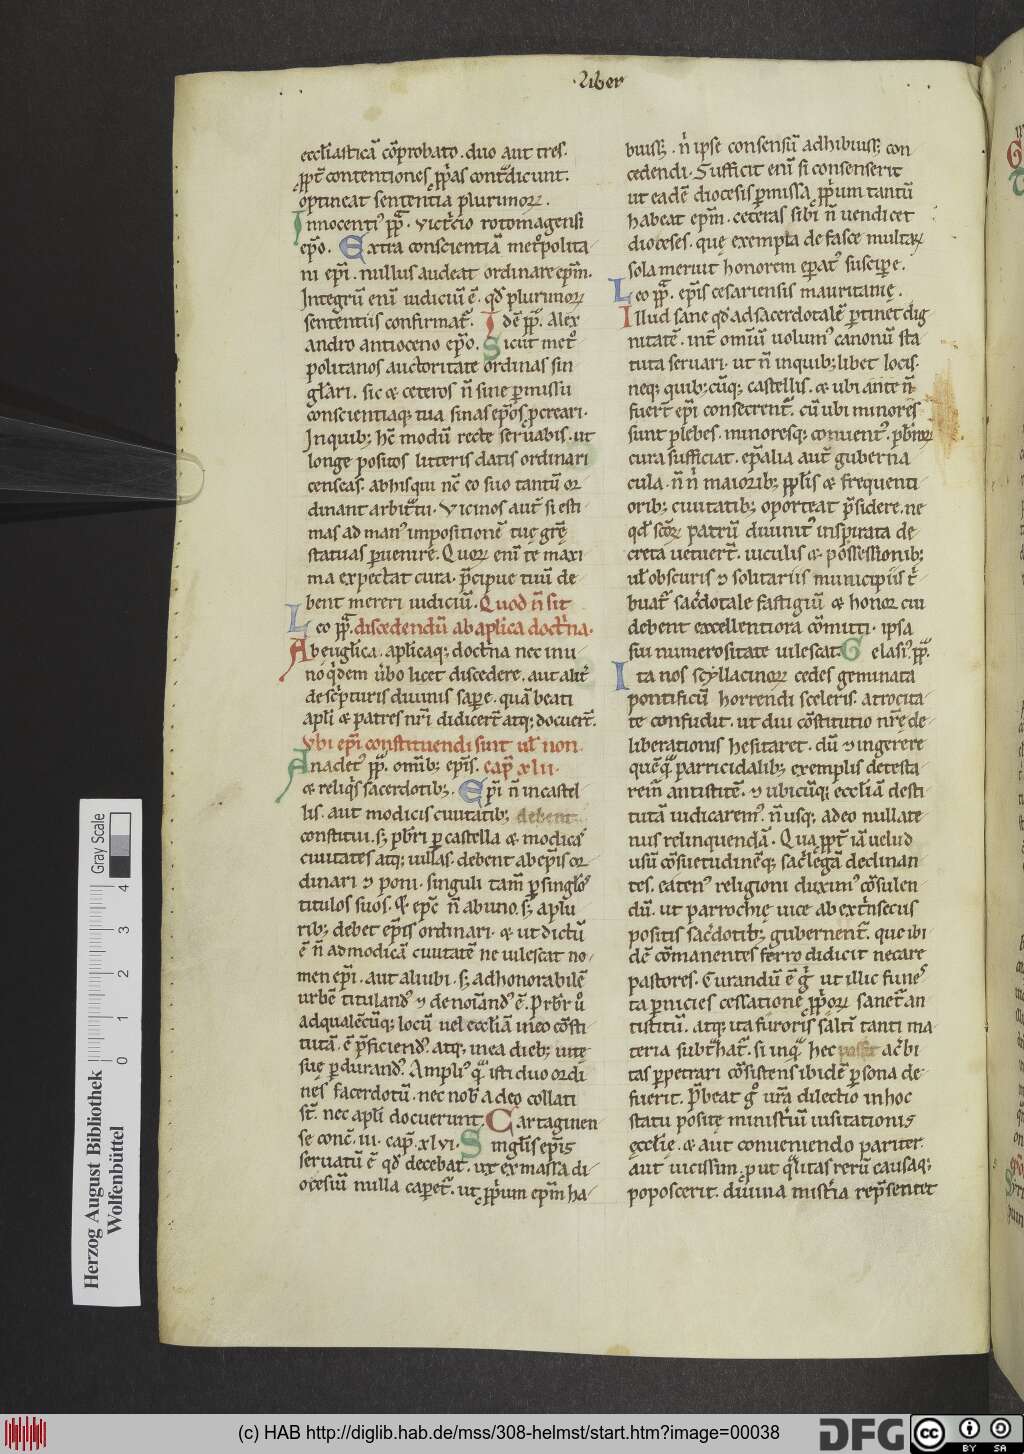 ·Liber
eccl̄iasticā cōprobato . duo aut tres .
ꝓpt̄ contentiones ꝓp̄as cont̄dicunt .
optineat sententia plurimoꝝ .
Innocentiꝰ pp̄ . victricio rotomagensi
ep̄o . Extra conscientiā metropolita-
ni ep̄i . nullus audeat ordinare ep̄m .
Integrū enī iudiciū ē . qd̄ plurimoꝝ
sententiis confirmat̄ . Idē pp̄ . Alex
andro antioceno ep̄o . Sicut metͦ
politanos auctoritate ordinas sin
gl̄ari . sic & ceteros n̄ sine ꝑmissu
conscientiaqꝫ tua sinas ep̄os ꝓcreari .
In quibꝫ hc̄ modū recte seruabis . ut
longe positos litteris datis ordinari
censeas . ab hisqui nc̄ eo suo tantū or
dinant arbitͥtu . Vicinos aut̄ si esti
mas ad manꝰ impositionē tuę grē
statuas ꝑuenire . Quoꝝ enī te maxi
ma expectat cura . p̄cipue tuū de-
bent mereri iudiciū . Quod n̄ sit
Leo pp̄ . discedendū ab aplica doctͥna .
Ab euglica . aplicaqꝫ doctͥna nec inu
no qͥdem ūbo licet discedere . aut alit̄
de scͥpturis diuinis saꝑe . quā beati
apl̄i & patres nr̄i didicer̄t atqꝫ docuer̄t .
Vbi ep̄i constituendi sunt ul̄ non .
Anacletꝰ pp̄ . omībꝫ ep̄is . cap̄ xlii .
& reliqͥs sacerdotibꝫ . Ep̄i n̄ in castel
lis . aut modicis ciuitatibꝫ debent
constitui . sꝫ pb̄ri ꝑ castella & modicas
ciuitates atqꝫ uillas . debent ab ep̄is or-
dinari ⁊ poni . singuli tam̄ ꝑ singl̄os
titulos suos . & ep̄c n̄ ab uno . sꝫ aplu
ribꝫ debet ep̄is ordinari . & ut dictū
ē n̄ ad modicā ciuitatē ne uilescat no-
men ep̄i . aut aliubi . sꝫ ad honorabilē
urbē titulandꝰ ⁊ denoīandꝰ ē . Prb̄r uͦ
ad qualēcūqꝫ locū uel eccl̄iā in eo cōsti
tutā . ē p̄ficiendꝰ . atqꝫ in ea diebꝫ uitę
suę ꝑdurandꝰ . Ampliꝰ qͣ isti duo ordi
nes sacerdotū . nec nob̄ a deo collati
st̄ . nec apl̄i docuerunt . Cartaginen
se conc̄ . iii . cap̄ . xlvi . Singl̄is ep̄is
seruatū ē qd̄ decebat . ut ex massa di
ocesiū nulla caꝑet̄ . ut ꝓp̄um ep̄m ha-
buissꝫ . nͥ ipse consensū adhibuissꝫ con
cedendi . Sufficit enī si consenserit
ut eadē diocesis ꝑmissa ꝓp̄um tantū
habeat ep̄m . ceteras sibi n̄ uendicet
dioceses . quę exempta de fasce multaꝝ
sola meruit honorem ep̄atꝰ susciꝑe .
Leo pp̄ . ep̄is cesariensis mauritanię .
Illud sane qd̄ ad sacerdotalē ꝑtinet dig
nitatē . int̄ omīū uolumꝰ canonū sta
tuta seruari . ut n̄ in quibꝫlibet locis .
neqꝫ quibꝫcūqꝫ castellis . & ubi ante n̄
fuer̄t ep̄i consecrent̄ . cū ubi minores
sunt plebes . minoresqꝫ conuentꝰ . pb̄roꝝ
cura sufficiat . ep̄alia aut̄ guberna
cula . n̄ nͥ maioribꝫ ppl̄is & frequenti
oribꝫ ciuitatibꝫ oporteat p̄sidere . ne
qd̄ sc̄oꝝ patrū diuinitꝰ inspirata de
creta uetuer̄t . uiculis & possessionibꝫ
ul̄ obscuris ⁊ solitariis municipiis tͥ-
buat̄ sac̄dotale fastigiū & honor cui
debent excellentiora cōmitti . ipsa
sui numerositate uilescat . Gelasiꝰ pp̄ .
Ita nos scyllacinoꝝ cedes geminata
pontificū horrendi sceleris . atrocita-
te confudit . ut diu cōstitutio nr̄ę de-
liberationis hesitaret . dū ⁊ ingerere
quēqͣ parricidalibꝫ exemplis detesta-
rem̄ antistitē . ⁊ ubicūqꝫ eccl̄iā desti
tutā iudicaremꝰ . n̄ usqꝫ adeo nullate
nus relinquendā . Qua ꝓpt̄ iā uelud
usū cōsuetudinēqꝫ sacͥlegā declinan
tes . eatenꝰ religioni duximꝰ cōsulen
dū . ut parrochię uice ab extͥnsecus
positis sac̄dotibꝫ gubernent̄ . que ibi
dē cōmanentes ferro didicit necare
pastores . Curandū ē gͥ ut illic funes
ta ꝑnicies cessatione ꝓp̄oꝝ sanet̄ an
tistitū . atqꝫ ita furoris saltī tanti ma-
teria subtͣhat̄ . si inqͣ hec possit ac̄bi
tas ꝑpetrari cōsistens ibidē ꝑsona de-
fuerit . P̄beat gͦ ur̄a dilectio in hoc
statu positę ministͥū uisitationis
ęcclię . & aut conueniendo pariter .
aut uicissim . ꝓut qͣlitas rerū causaqꝫ
poposcerit . diuina mistͥa rep̄sentet
Gray Scale
0 1 2 3 4
Herzog August Bibliothek
Wolfenbüttel
(c) HAB http://diglib.hab.de/mss/308-helmst/start.htm?image=00038
DFG
cc BY SA